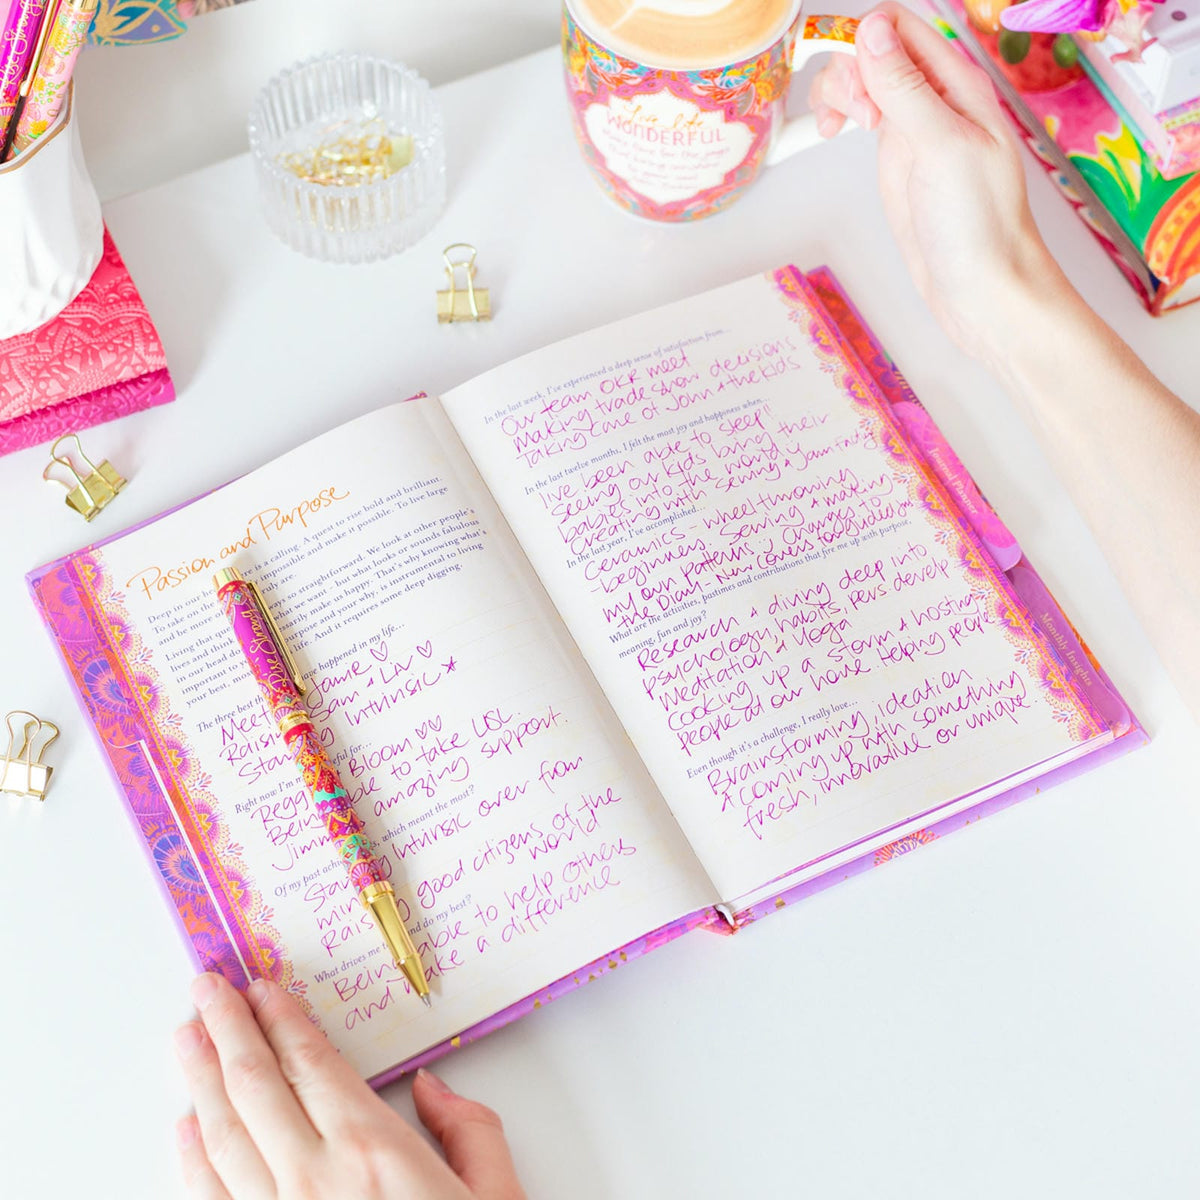 Live life
WONDERFUL
Passion and Purpose
Deep in our he re is a calling. A quest to rise bold and brilliant.
To take on the impossible and make it possible. To live large
and be more uly are.
Living that qu ways so straightforward. We look at other people's
lives and thin hat we want - but what looks or sounds fabulous
in our head do sarily make us happy. That's why knowing what's
important to urpose and your why, is instrumental to living
your best, most life. And it requires some deep digging.
The three best th ave happened in my life...
Meet amie ♡
Rais am + Liv ♡
Sta Intrinsic *
Right now I'm eful for...
Regg Bloom ♡♡
Bein ble to take LSL.
Jimm amazing support.
Of my past ach s, which meant the most?
Star Intrinsic over from
Rais good citizens of the
world
What drives me t nd do my best?
Being able to help others
and make a difference
In the last week, I've experienced a deep sense of satisfaction from...
Our team OKR meet
making trade show decisions
Taking care of John + the kids
In the last twelve months, I felt the most joy and happiness when...
I've been able to sleep!!
seeing our kids bring their
babies into the world
Creating with sewing +
In the last year, I've accomplished...
Ceramics - wheel throwing
- beginners sewing + making
my own patterns. Changes to
the Diary - New covers to
What are the activities, pastimes and contributions that fire me up with purpose,
meaning, fun and joy?
Research + diving deep into
psychology, habits, pers. develp
meditation + yoga
Cooking up a storm + hosting
people at our house. Helping people
Even though it's a challenge, I really love...
Brainstorming, ideation
+ coming up with something
fresh, innovative or unique.
Journal Planner
Monthly Insights